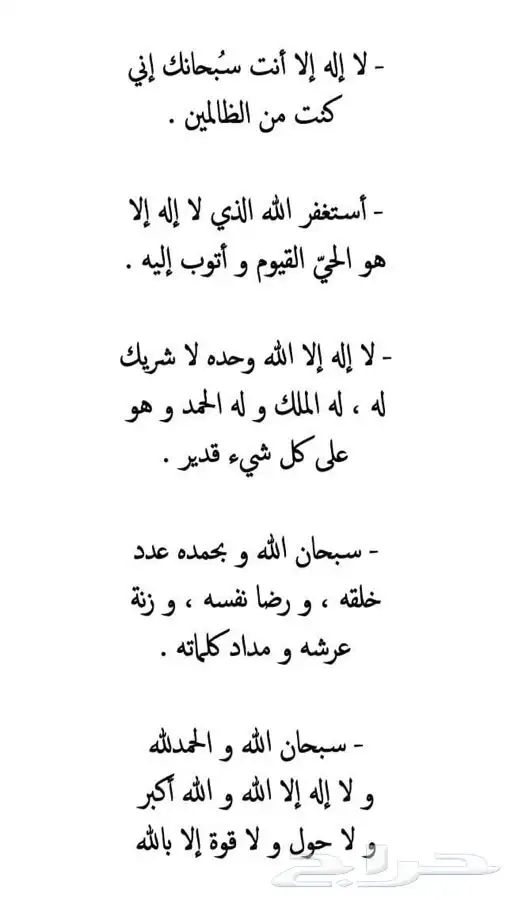 - لا إله إلا أنت سُبحانك إني
كنت من الظالمين .
- أستغفر الله الذي لا إله إلا
هو الحيّ القيوم و أتوب إليه .
- لا إله إلا الله وحده لا شريك
له ، له الملك و له الحمد و هو
على كل شيء قدير .
- سبحان الله و بحمده عدد
خلقه ، و رضا نفسه ، و زنة
عرشه و مداد كلماته .
- سبحان الله و الحمدلله
و لا إله إلا الله و الله أكبر
و لا حول و لا قوة إلا بالله
حراج